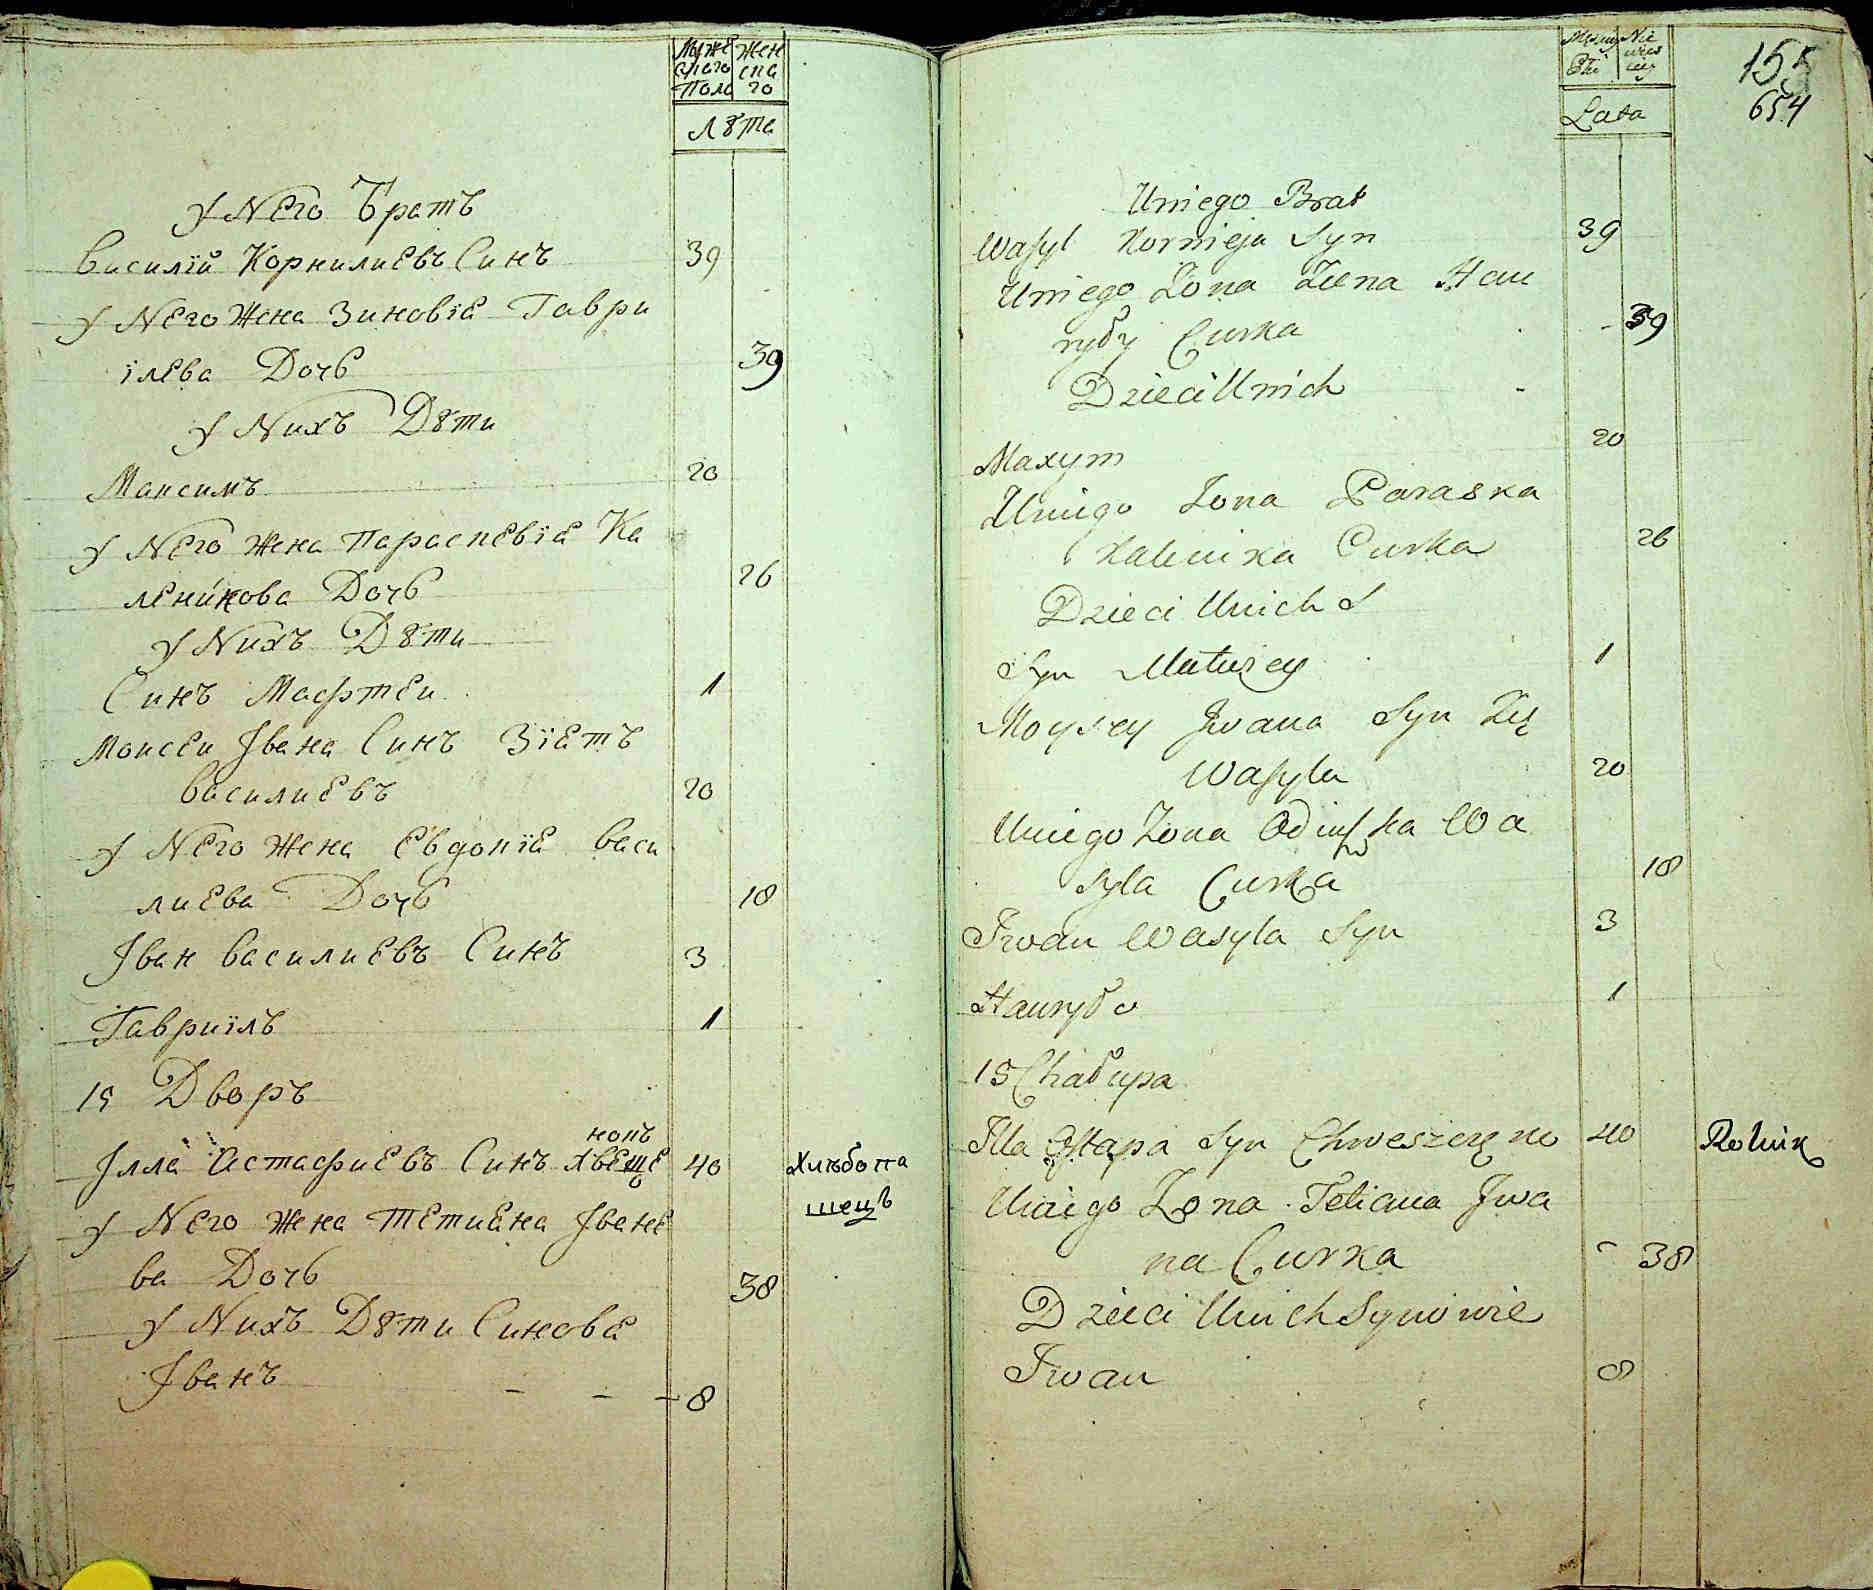 Муже Жен
скаго ска
Пола го
Лѣта
У Него Братъ
Василїй Корнилиевъ Синъ 39
У Него Жена Зиновїа Гаври
їлева Дочь 39
У Нихъ Дѣти
Максимъ 20
У Него жена Параскевїа Ка
леникова Дочь 26
У Нихъ Дѣти
Синъ Мафтеи 1
Моисеи Iвана Синъ Зїатъ
Василиевъ 20
У Него жена Евдокїа Васи
лиева Дочь 18
Iван Василиевъ Синъ 3
Гавриїлъ 1
15 Дворъ
нокъ
Iлла Астафиевъ Синъ Хвеще 40 Хлѣбопа
шецъ
У Него жена Тетиана Iване
ва Дочь 38
У Нихъ Дѣти Синова
Iванъ - - - 8
155
654
Lata
Uniego Brat
Wasyl Kornieja Syn 39
Uniego Zona Zena Hau
ryły Curka 39
Dzieci Unich
Maxym 20
Uniego Zona Paraska
Kalenika Curka 26
Dzieci Unich
Syn Matwiey 1
Moysey Jwana Syn Zię
Wasyla 20
Uniego Zona Wa
syla Curka 18
Jwan Wasyla Syn 3
Hauryło 1
15 Chałupa
Illa Ostapa Syn Chweszczeno 40 Rolnik
Uniego Zona Tetiana Jwa
na Curka 38
Dzieci Unich Synowie
Jwan 8